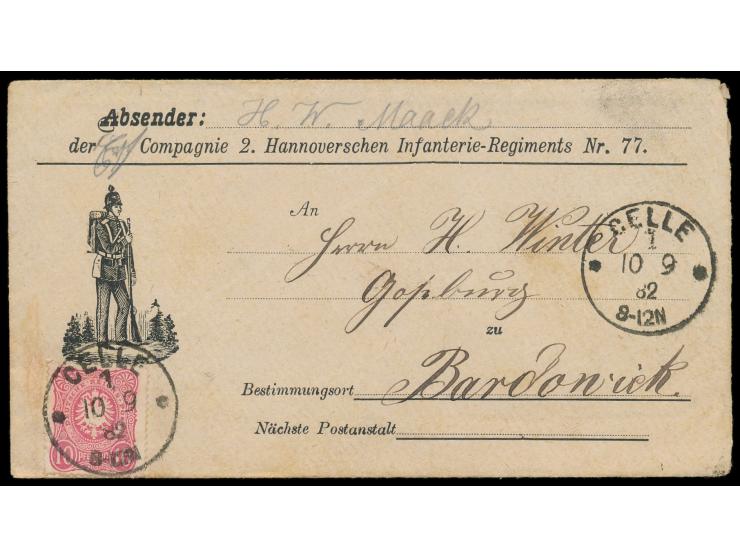 Absender: H. W. Maack
der Compagnie 2. Hannoverschen Infanterie-Regiments Nr. 77.
An
Herrn H. Winter
zu
Bestimmungsort Bardowiek.
Nächste Postanstalt
CELLE
1
10 9
82
8-12N
CELLE
1
10 9
82
8-12N
10